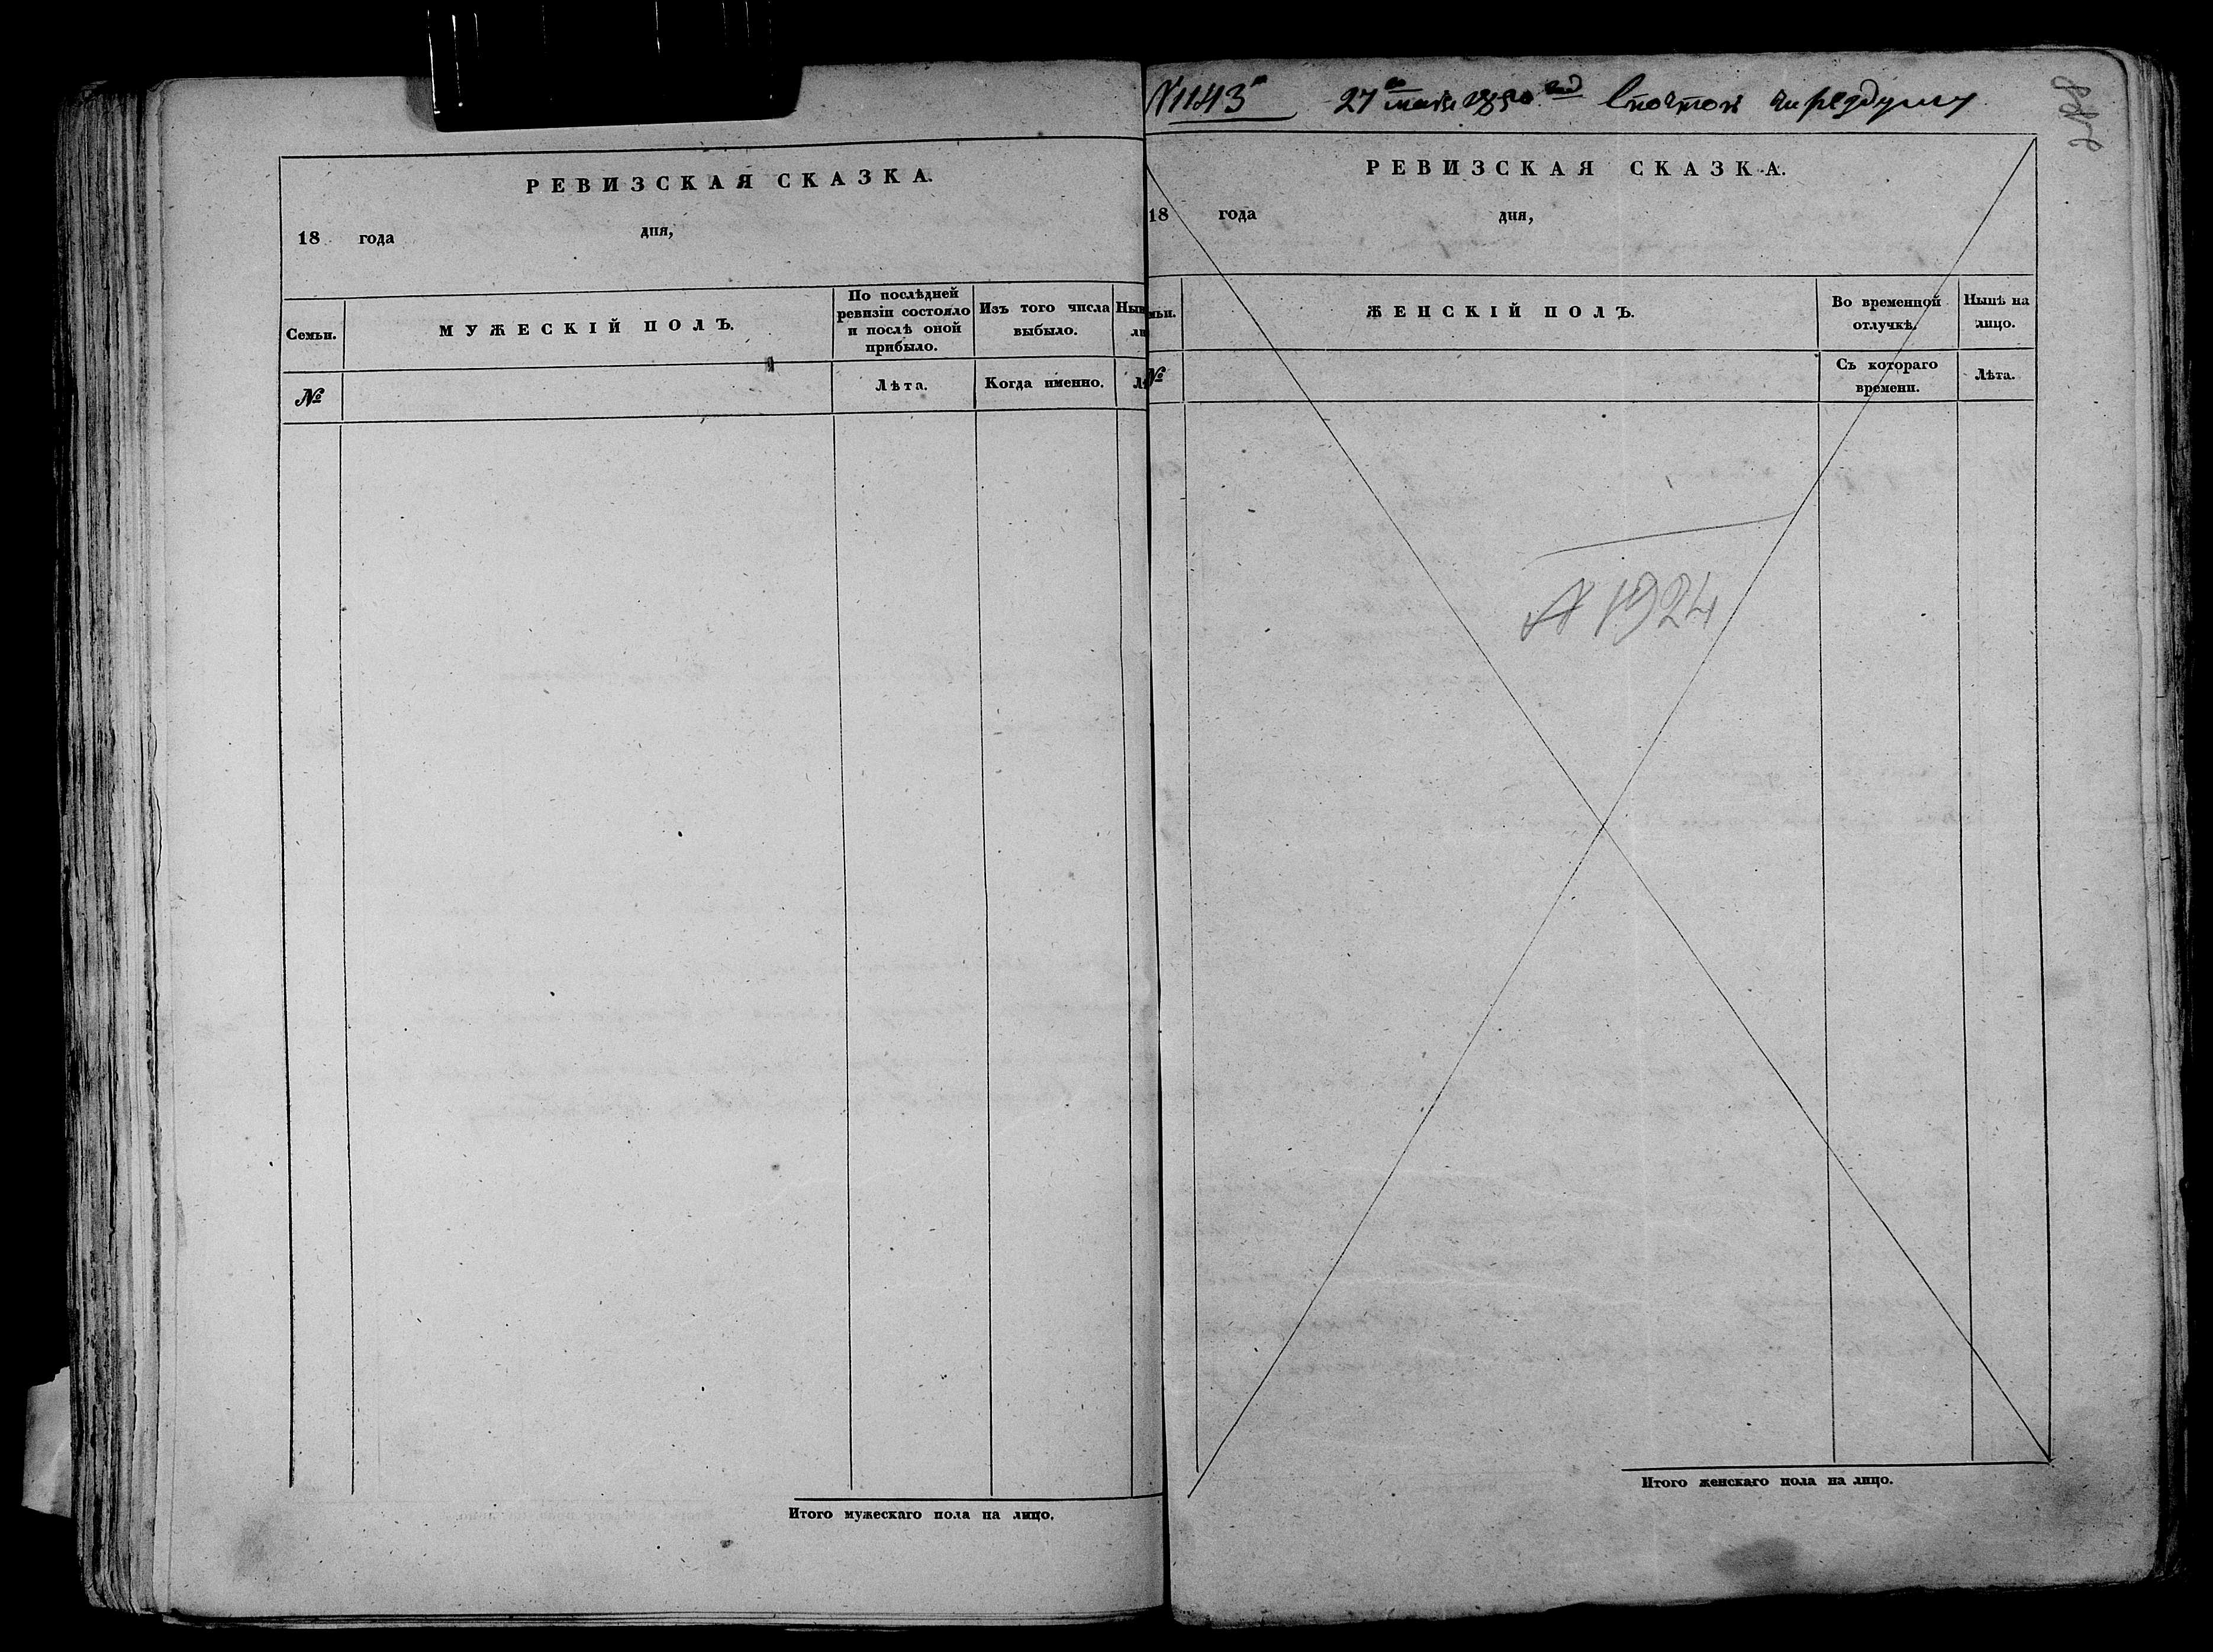 РЕВИЗСКАЯ СКАЗКА.
18 года дня,
Семьи.
МУЖЕСКІЙ ПОЛЪ.
По послѣдней
ревизіи состояло
и послѣ оной
прибыло.
Изъ того числа
выбыло.
№
Лѣта.
Когда именно.
Итого мужескаго пола на лицо.
N 1143
27 мая 1850
РЕВИЗСКАЯ СКАЗКА.
18 года дня,
ЖЕНСКІЙ ПОЛЪ.
Во временной
отлучкѣ.
Нынѣ на
лицо.
№
Съ котораго
времени.
Лѣта.
№ 1924
Итого женскаго пола на лицо.